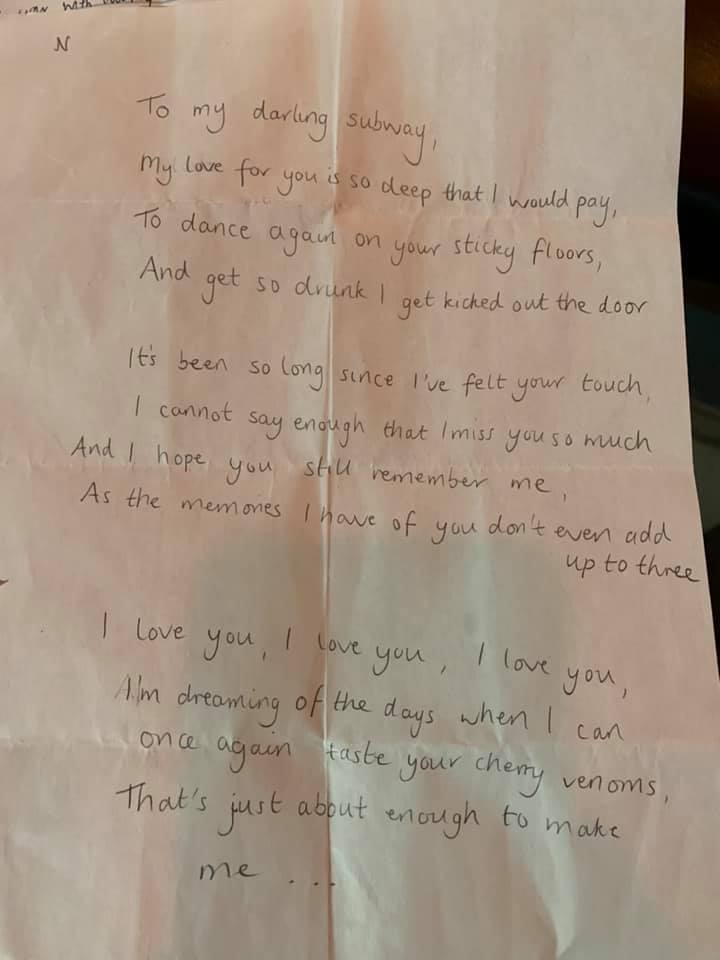 with
N
To my darling subway,
My love for you is so deep that I would pay,
To dance again on your sticky floors,
And get so drunk I get kicked out the door
It's been so long since I've felt your touch,
I cannot say enough that I miss you so much
And I hope you still remember me,
As the memories I have of you don't even add
up to three
I love you, I love you, I love you,
I'm dreaming of the days when I can
once again taste your cherry venoms,
That's just about enough to make
me ...